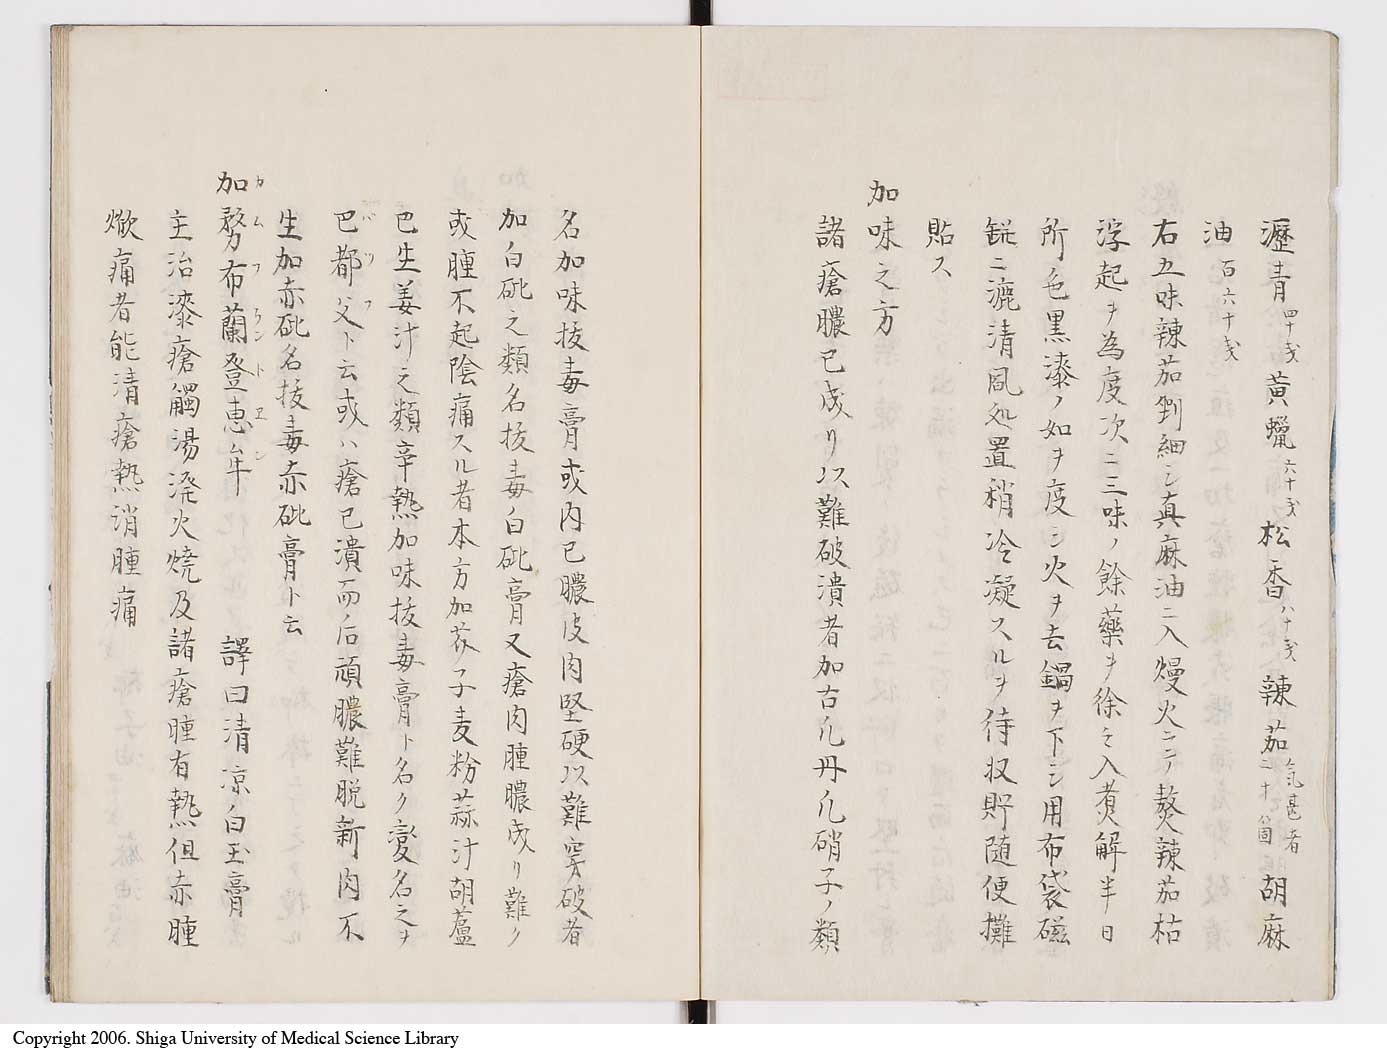 瀝青四十戔黄蠟六十戔松香八十戔辣茄気甚者二十箇胡麻
油百六十戔
右五味辣茄剉細シ真麻油ニ入熳火ニテ熬辣茄枯
浮起ヲ為度次ニ三味ノ餘藥ヲ徐々入煮解半日
所色黒漆ノ如ヲ度シ火ヲ去鍋ヲ下シ用布袋磁
鋌ニ漉清風処置稍冷凝スルヲ待収貯随便攤
貼ス
加味之方
諸瘡膿已成リ以難破潰者加古凢丹凢硝子ノ類
名加味抜毒膏或内已膿皮肉堅硬以難穿破者
加白砒之類名抜毒白砒膏又瘡肉腫膿成リ難ク
或腫不起陰痛スル者本方加芥子麦粉蒜汁胡蘆
巴生姜汁之類辛熱加味抜毒膏ト名ク変名之ヲ
巴都父ト云或ハ瘡已潰而后頑膿難脱新肉不
バツフ
生加赤砒名抜毒赤砒膏ト云
加務布蘭登恵牟 譯曰清凉白玉膏
カムフランドヱン
主治漆瘡觸湯溌火焼及諸瘡腫有熱但赤腫
焮痛者能清瘡熱消腫痛
Copyright 2006. Shiga University of Medical Science Library